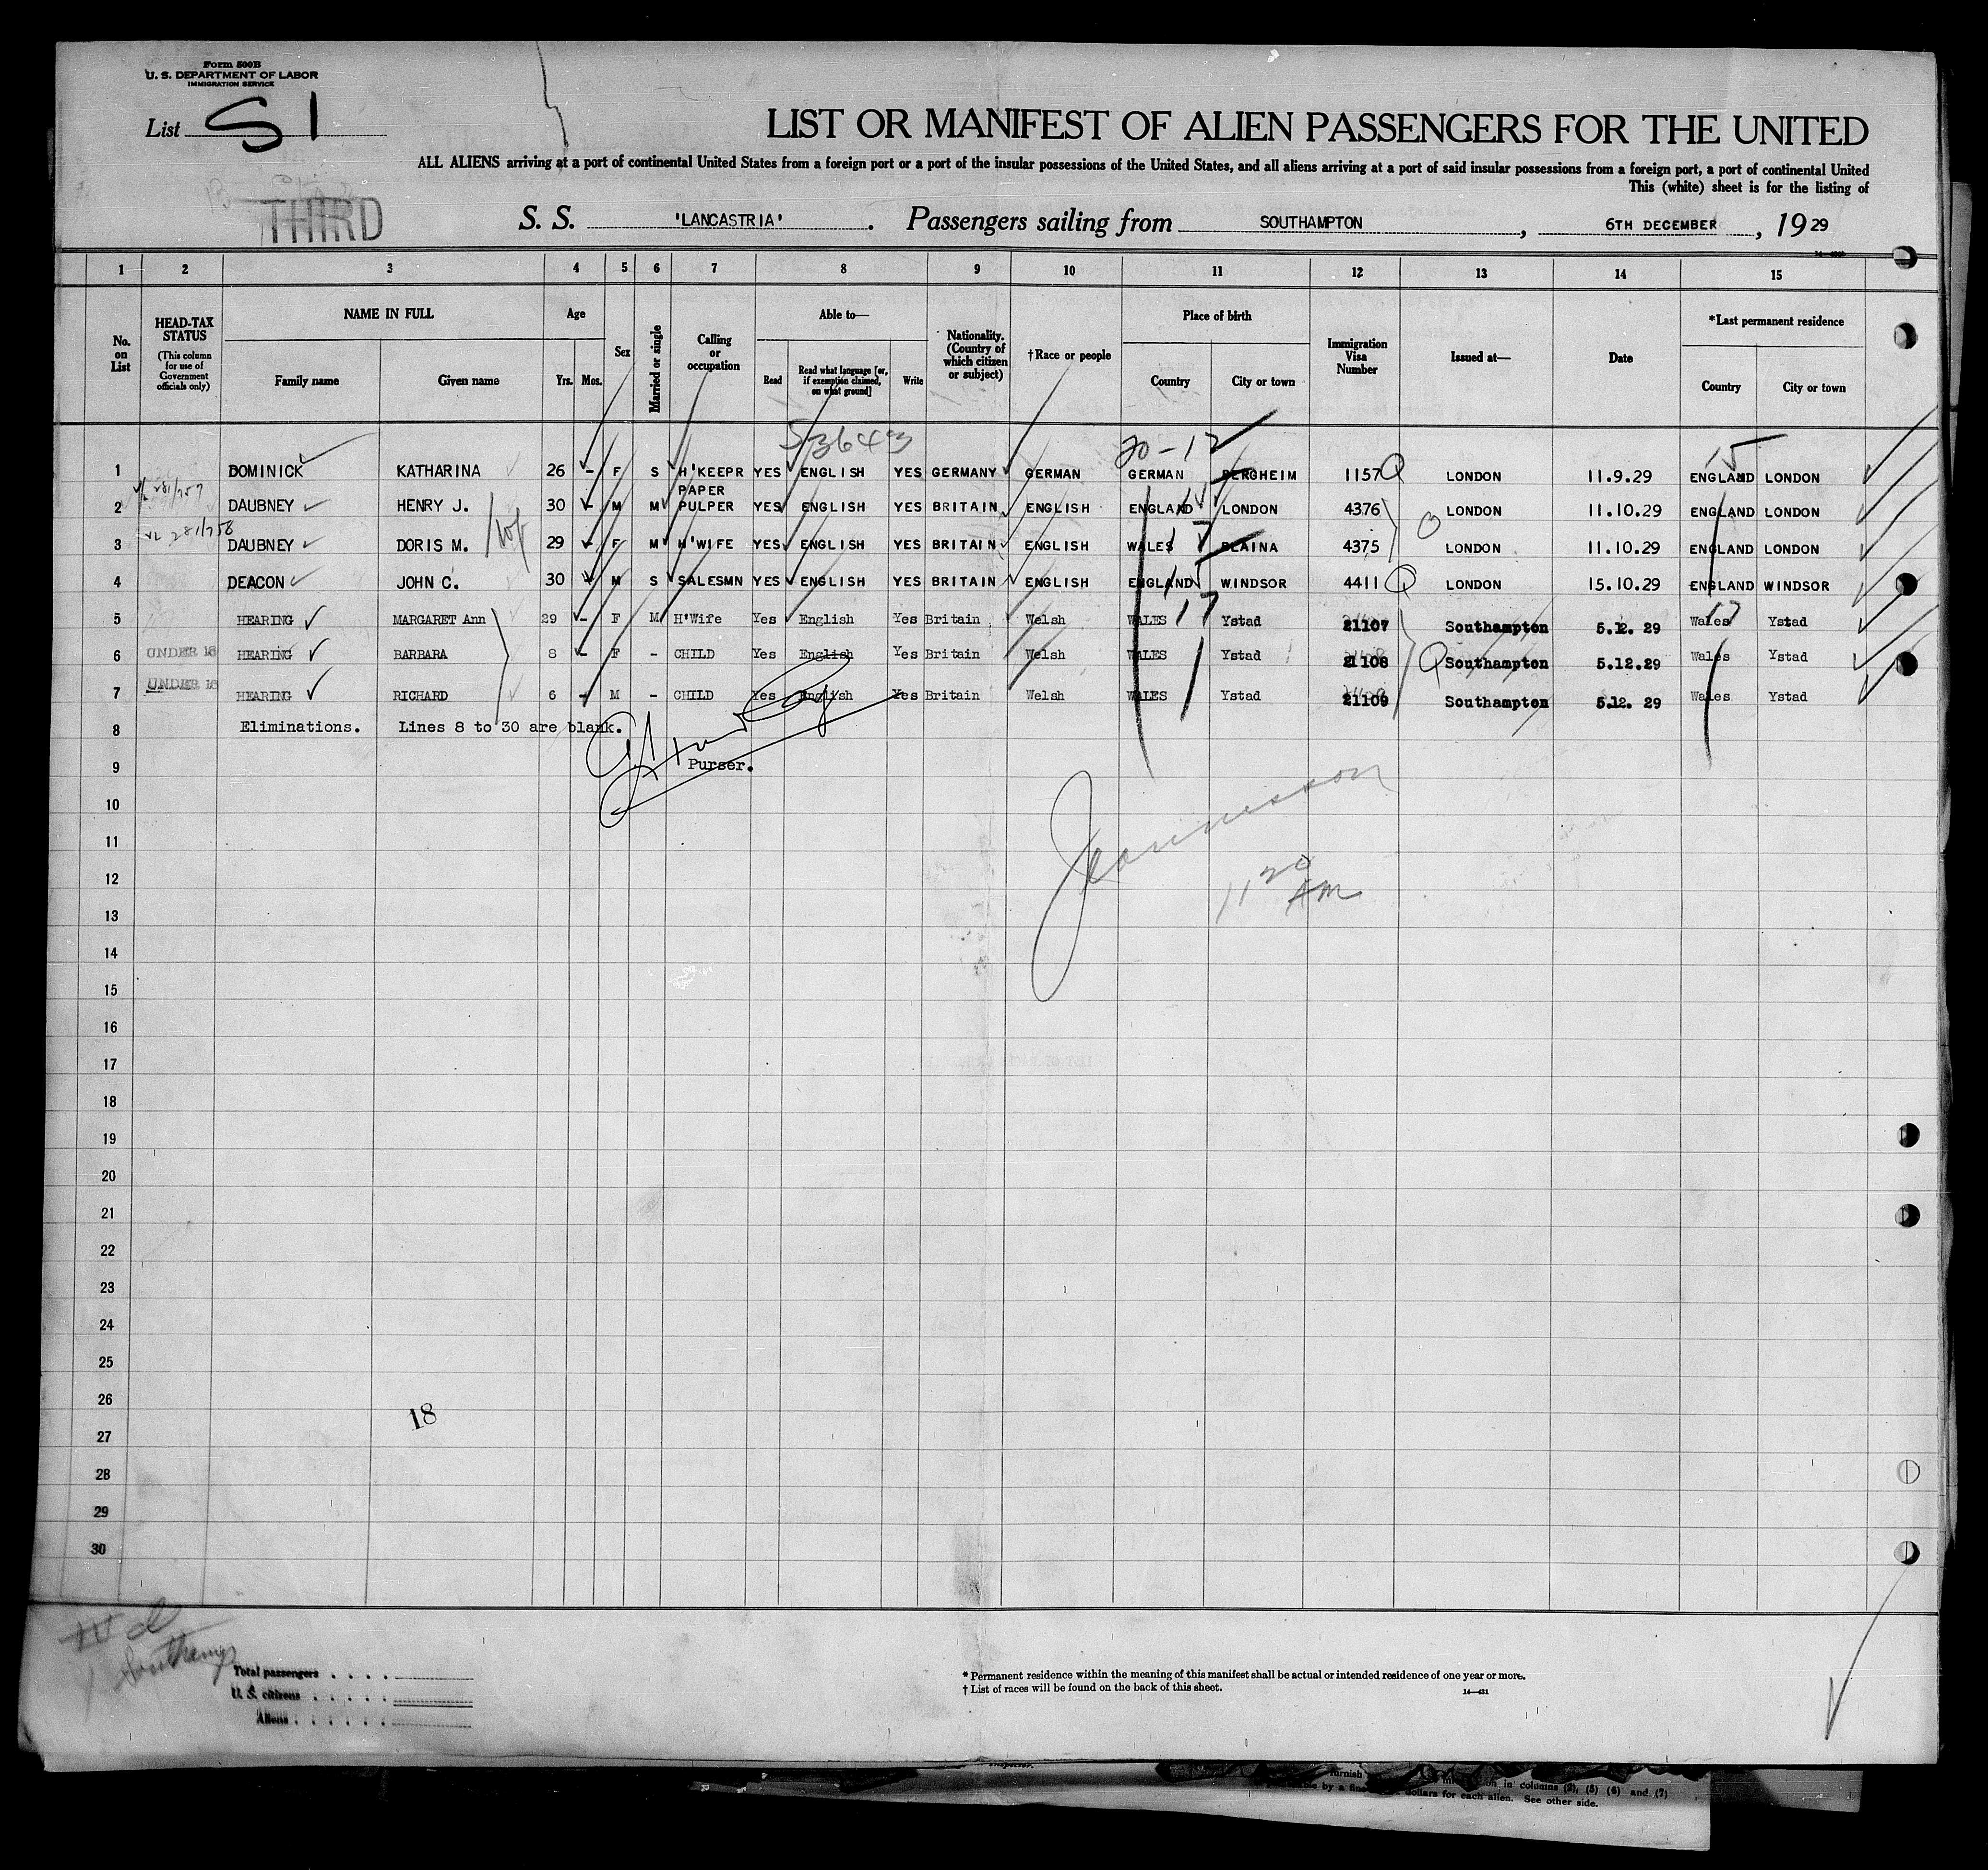 Form 500B
U. S. DEPARTMENT OF LABOR
IMMIGRATION SERVICE
List S 1
LIST OR MANIFEST OF ALIEN PASSENGERS FOR THE UNITED
ALL ALIENS arriving at a port of continental United States from a foreign port or a port of the insular possessions of the United States, and all aliens arriving at a port of said insular possessions from a foreign port, a port of continental United
This (white) sheet is for the listing of
THIRD
S. S. 'LANCASTRIA'. Passengers sailing from SOUTHAMPTON, 6TH DECEMBER, 1929
1 2 3 4 5 6 7 8 9 10 11 12 13 14 15
No. on List
HEAD-TAX STATUS (This column for use of Government officials only)
NAME IN FULL Family name Given name
Age Yrs. Mos.
Sex
Married or single
Calling or occupation
Able to— Read Read what language [or, if exemption claimed, on what ground] Write
Nationality. (Country of which citizen or subject)
†Race or people
Place of birth Country City or town
Immigration Visa Number
Issued at—
Date
*Last permanent residence Country City or town
53643 20-12 15
1 DOMINICK KATHARINA 26 - F S H'KEEPR YES ENGLISH YES GERMANY GERMAN GERMAN BERGHEIM 1157 LONDON 11.9.29 ENGLAND LONDON
2 DAUBNEY HENRY J. 30 - M M PAPER PULPER YES ENGLISH YES BRITAIN ENGLISH ENGLAND LONDON 4376 LONDON 11.10.29 ENGLAND LONDON
3 DAUBNEY DORIS M. 29 - F M H'WIFE YES ENGLISH YES BRITAIN ENGLISH WALES BLAINA 4375 LONDON 11.10.29 ENGLAND LONDON
4 DEACON JOHN C. 30 - M S SALESMN YES ENGLISH YES BRITAIN ENGLISH ENGLAND WINDSOR 4411 LONDON 15.10.29 ENGLAND WINDSOR
5 HEARING MARGARET Ann 29 - F M H'Wife Yes English Yes Britain Welsh WALES 17 Ystad 21107 Southampton 5.12.29 Wales Ystad
6 UNDER 16 HEARING BARBARA 8 - F - CHILD Yes English Yes Britain Welsh WALES Ystad 21108 Southampton 5.12.29 Wales Ystad
7 UNDER 16 HEARING RICHARD 6 - M - CHILD Yes English Yes Britain Welsh WALES Ystad 21109 Southampton 5.12.29 Wales Ystad
8 Eliminations. Lines 8 to 30 are blank.
9 Purser.
10
11
12 11 20 AM
13
14
15
16
17
18
19
20
21
22
23
24
25
26
18
27
28
29
30
Total passengers
U. S. citizens
Aliens
* Permanent residence within the meaning of this manifest shall be actual or intended residence of one year or more.
† List of races will be found on the back of this sheet.
14—431
furnish
in columns (2), (5) (6) and (7)
dollars for each alien. See other side.